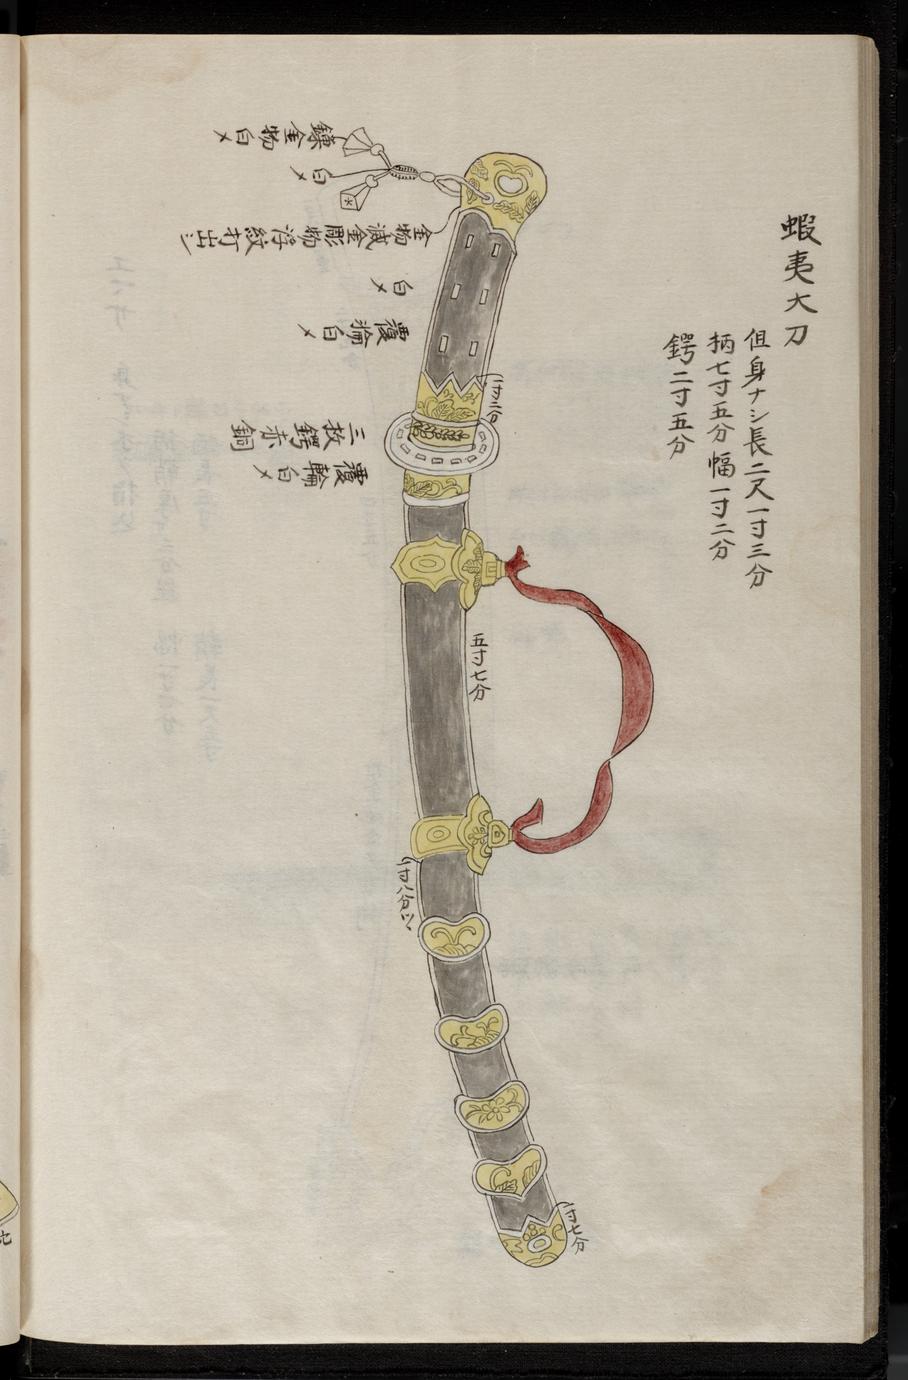 蝦夷大刀
但身ナシ長二尺一寸三分
柄七寸五分幅一寸二分
鍔二寸五分
鎌金物白メ
白メ
金物減金彫物浮紋打出シ
白メ
覆輪白メ
一寸二分
三枚鍔赤銅
覆輪白メ
五寸七分
一寸八分
一寸七分